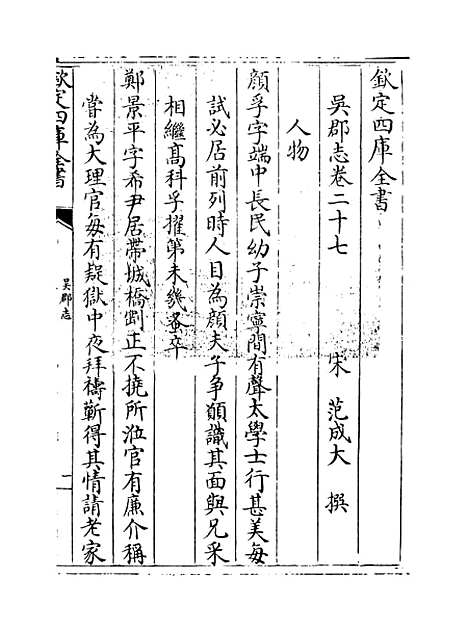 欽定四庫全書
吳郡志卷二十七
宋 范成大 撰
人物
顔孚字端中長民幼子崇寧間有聲太學士行甚美每
試必居前列時人目為顔夫子争願識其面與兄采
相繼髙科孚擢第未幾蚤卒
鄭景平字希尹居帶城橋剛正不撓所涖官有廉介稱
嘗為大理官每有疑獄中夜拜禱蘄得其情請老家
欽定四庫全書
吳郡志
一